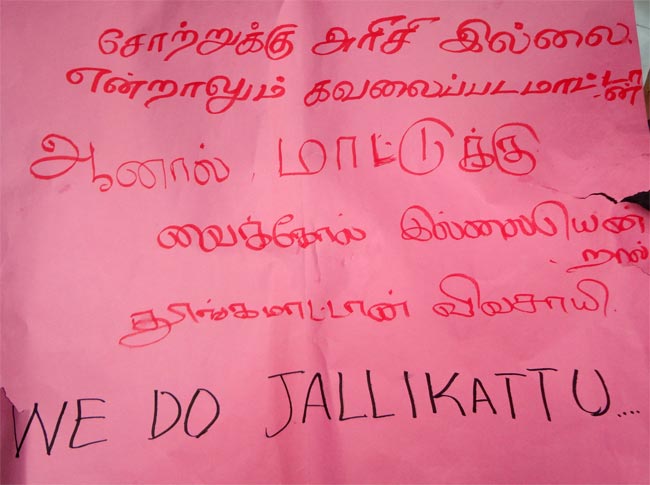 சோற்றுக்கு அரிசி இல்லை.
என்றாலும் கவலைப்படமாட்டான்
ஆனால் மாட்டுக்கு
வைக்கோல் இல்லையென்
றால்
தூங்கமாட்டான் விவசாயி.
WE DO JALLIKATTU....